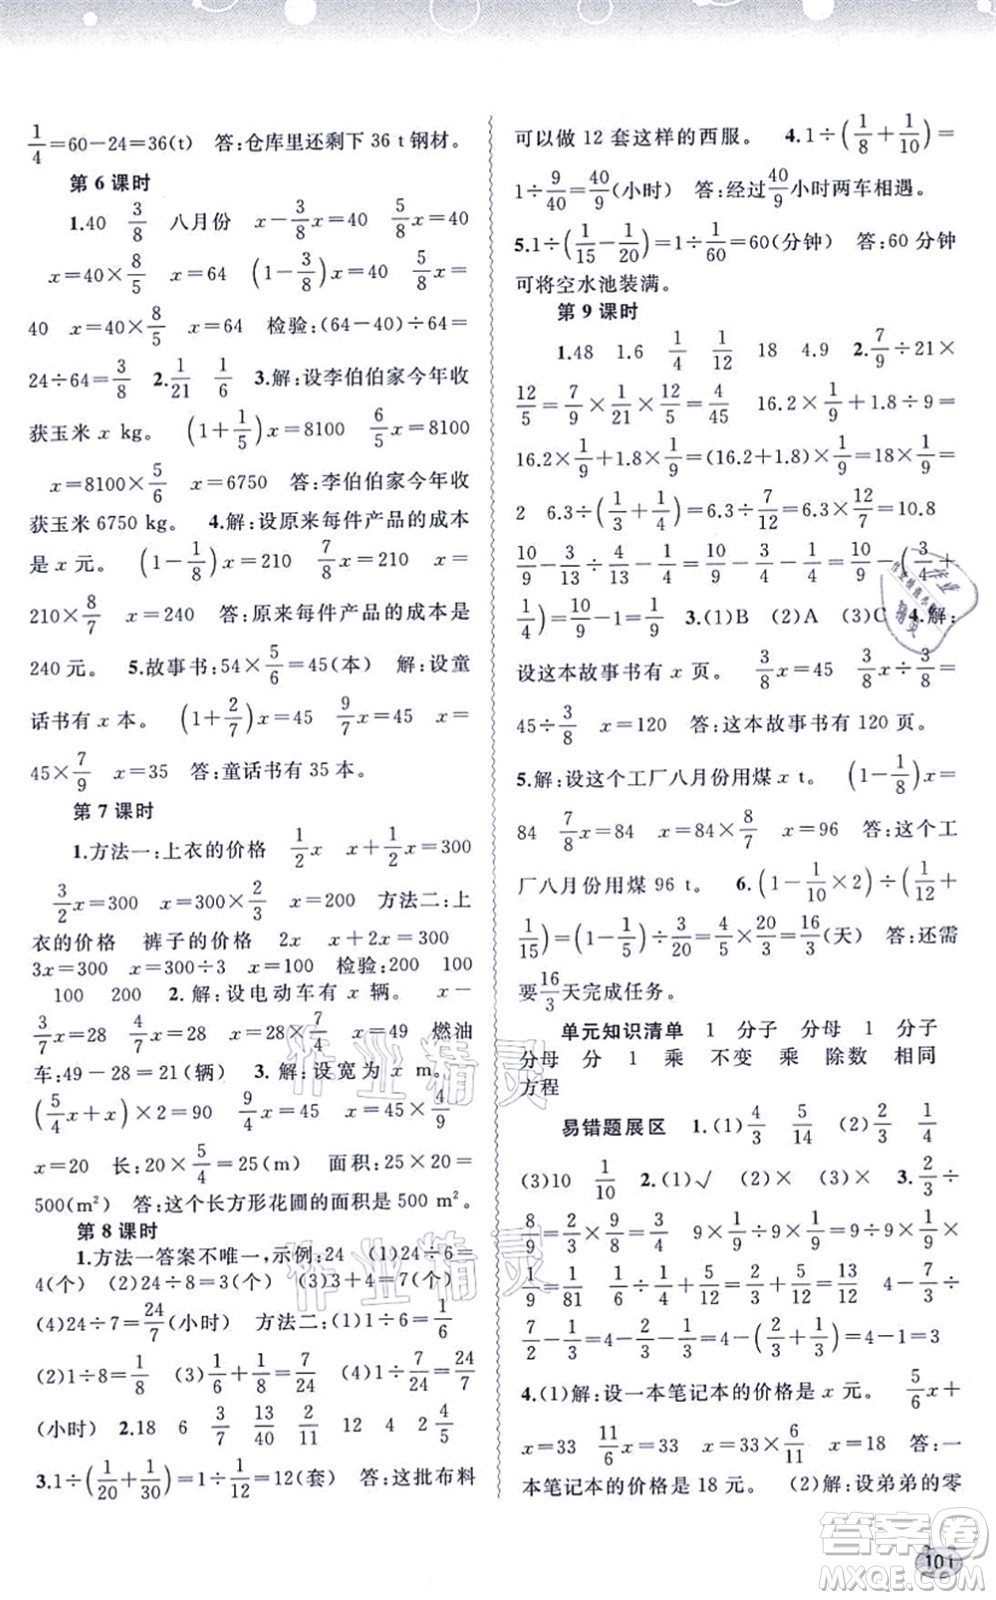 1/4=60-24=36(t) 答:仓库里还剩下 36 t 钢材。
第 6 课时
1.40 3/8 八月份 x-3/8x=40 5/8x=40
x=40×8/5 x=64 (1-3/8)x=40 5/8x=
40 x=40×8/5 x=64 检验:(64-40)÷64=
24÷64=3/8 2.1/21 1/6 3.解:设李伯伯家今年收
获玉米 x kg。 (1+1/5)x=8100 6/5x=8100
x=8100×5/6 x=6750 答:李伯伯家今年收
获玉米 6750 kg。 4.解:设原来每件产品的成本
是 x 元。 (1-1/8)x=210 7/8x=210 x=
210×8/7 x=240 答:原来每件产品的成本是
240 元。 5.故事书:54×5/6=45(本) 解:设童
话书有 x 本。 (1+2/7)x=45 9/7x=45 x=
45×7/9 x=35 答:童话书有 35 本。
第 7 课时
1.方法一:上衣的价格 1/2x x+1/2x=300
3/2x=300 x=300×2/3 x=200 方法二:上
衣的价格 裤子的价格 2x x+2x=300
3x=300 x=300÷3 x=100 检验:200 100
100 200 2.解:设电动车有 x 辆。 x-
3/7x=28 4/7x=28 x=28×7/4 x=49 燃油
车:49-28=21(辆) 3.解:设宽为 x m。
(5/4x+x)×2=90 9/4x=45 x=45×4/9
x=20 长:20×5/4=25(m) 面积:25×20=
500(m²) 答:这个长方形花圃的面积是 500 m²。
第 8 课时
1.方法一答案不唯一,示例:24 (1)24÷6=
4(个) (2)24÷8=3(个) (3)3+4=7(个)
(4)24÷7=24/7(小时) 方法二:(1)1÷6=1/6
(2)1÷8=1/8 (3)1/6+1/8=7/24 (4)1÷7/24=24/7
(小时) 2.18 6 3/7 13/40 12 4 2 4/5
3.1÷(1/20+1/30)=1÷1/12=12(套) 答:这批布料
可以做 12 套这样的西服。 4.1÷(1/8+1/10)=
1÷9/40=40/9(小时) 答:经过40/9小时两车相遇。
5.1÷(1/15-1/20)=1÷1/60=60(分钟) 答:60 分钟
可将空水池装满。
第 9 课时
1.48 1.6 1/4 1/12 18 4.9 2.7/9÷21×
12/5=7/9×1/21×12/5=4/45 16.2×1/9+1.8÷9=
16.2×1/9+1.8×1/9=(16.2+1.8)×1/9=18×1/9=
2 6.3÷(1/3+1/4)=6.3÷7/12=6.3×12/7=10.8
10/9-3/13÷4/13-1/4=10/9-3/4-1/4=10/9-(3/4+
1/4)=10/9-1=1/9 3.(1)B (2)A (3)C 4.解:
设这本故事书有 x 页。 3/8x=45 3/8x÷3/8=
45÷3/8 x=120 答:这本故事书有 120 页。
5.解:设这个工厂八月份用煤 x t。 (1-1/8)x=
84 7/8x=84 x=84×8/7 x=96 答:这个工
厂八月份用煤 96 t。 6.(1-1/10×2)÷(1/12+
1/15)=(1-1/5)÷3/20=4/5×20/3=16/3(天) 答:还需
要16/3天完成任务。
单元知识清单 1 分子 分母 1 分子
分母 分 1 乘 不变 乘 除数 相同
方程
易错题展区 1.(1)4/3 5/14 (2)2/3 1/4
(3)10 1/10 2.(1)√ (2)× (3)× 3.2/3÷
8/9=2/3×9/8=3/4 9×1/9÷9×1/9=1×1/9×1/9=
1/81 1/3÷4/5+1/4÷3=5/12+1/12=1/2 4-2/3÷
7/2-1/3=4-2/3-1/3=4-(2/3+1/3)=4-1=3
4.(1)解:设一本笔记本的价格是 x 元。 5/6x+
x=33 11/6x=33 x=33×6/11 x=18 答:一
本笔记本的价格是 18 元。 (2)解:设弟弟的零
101
作业精灵
作业精灵
答案圈
MXQE.COM